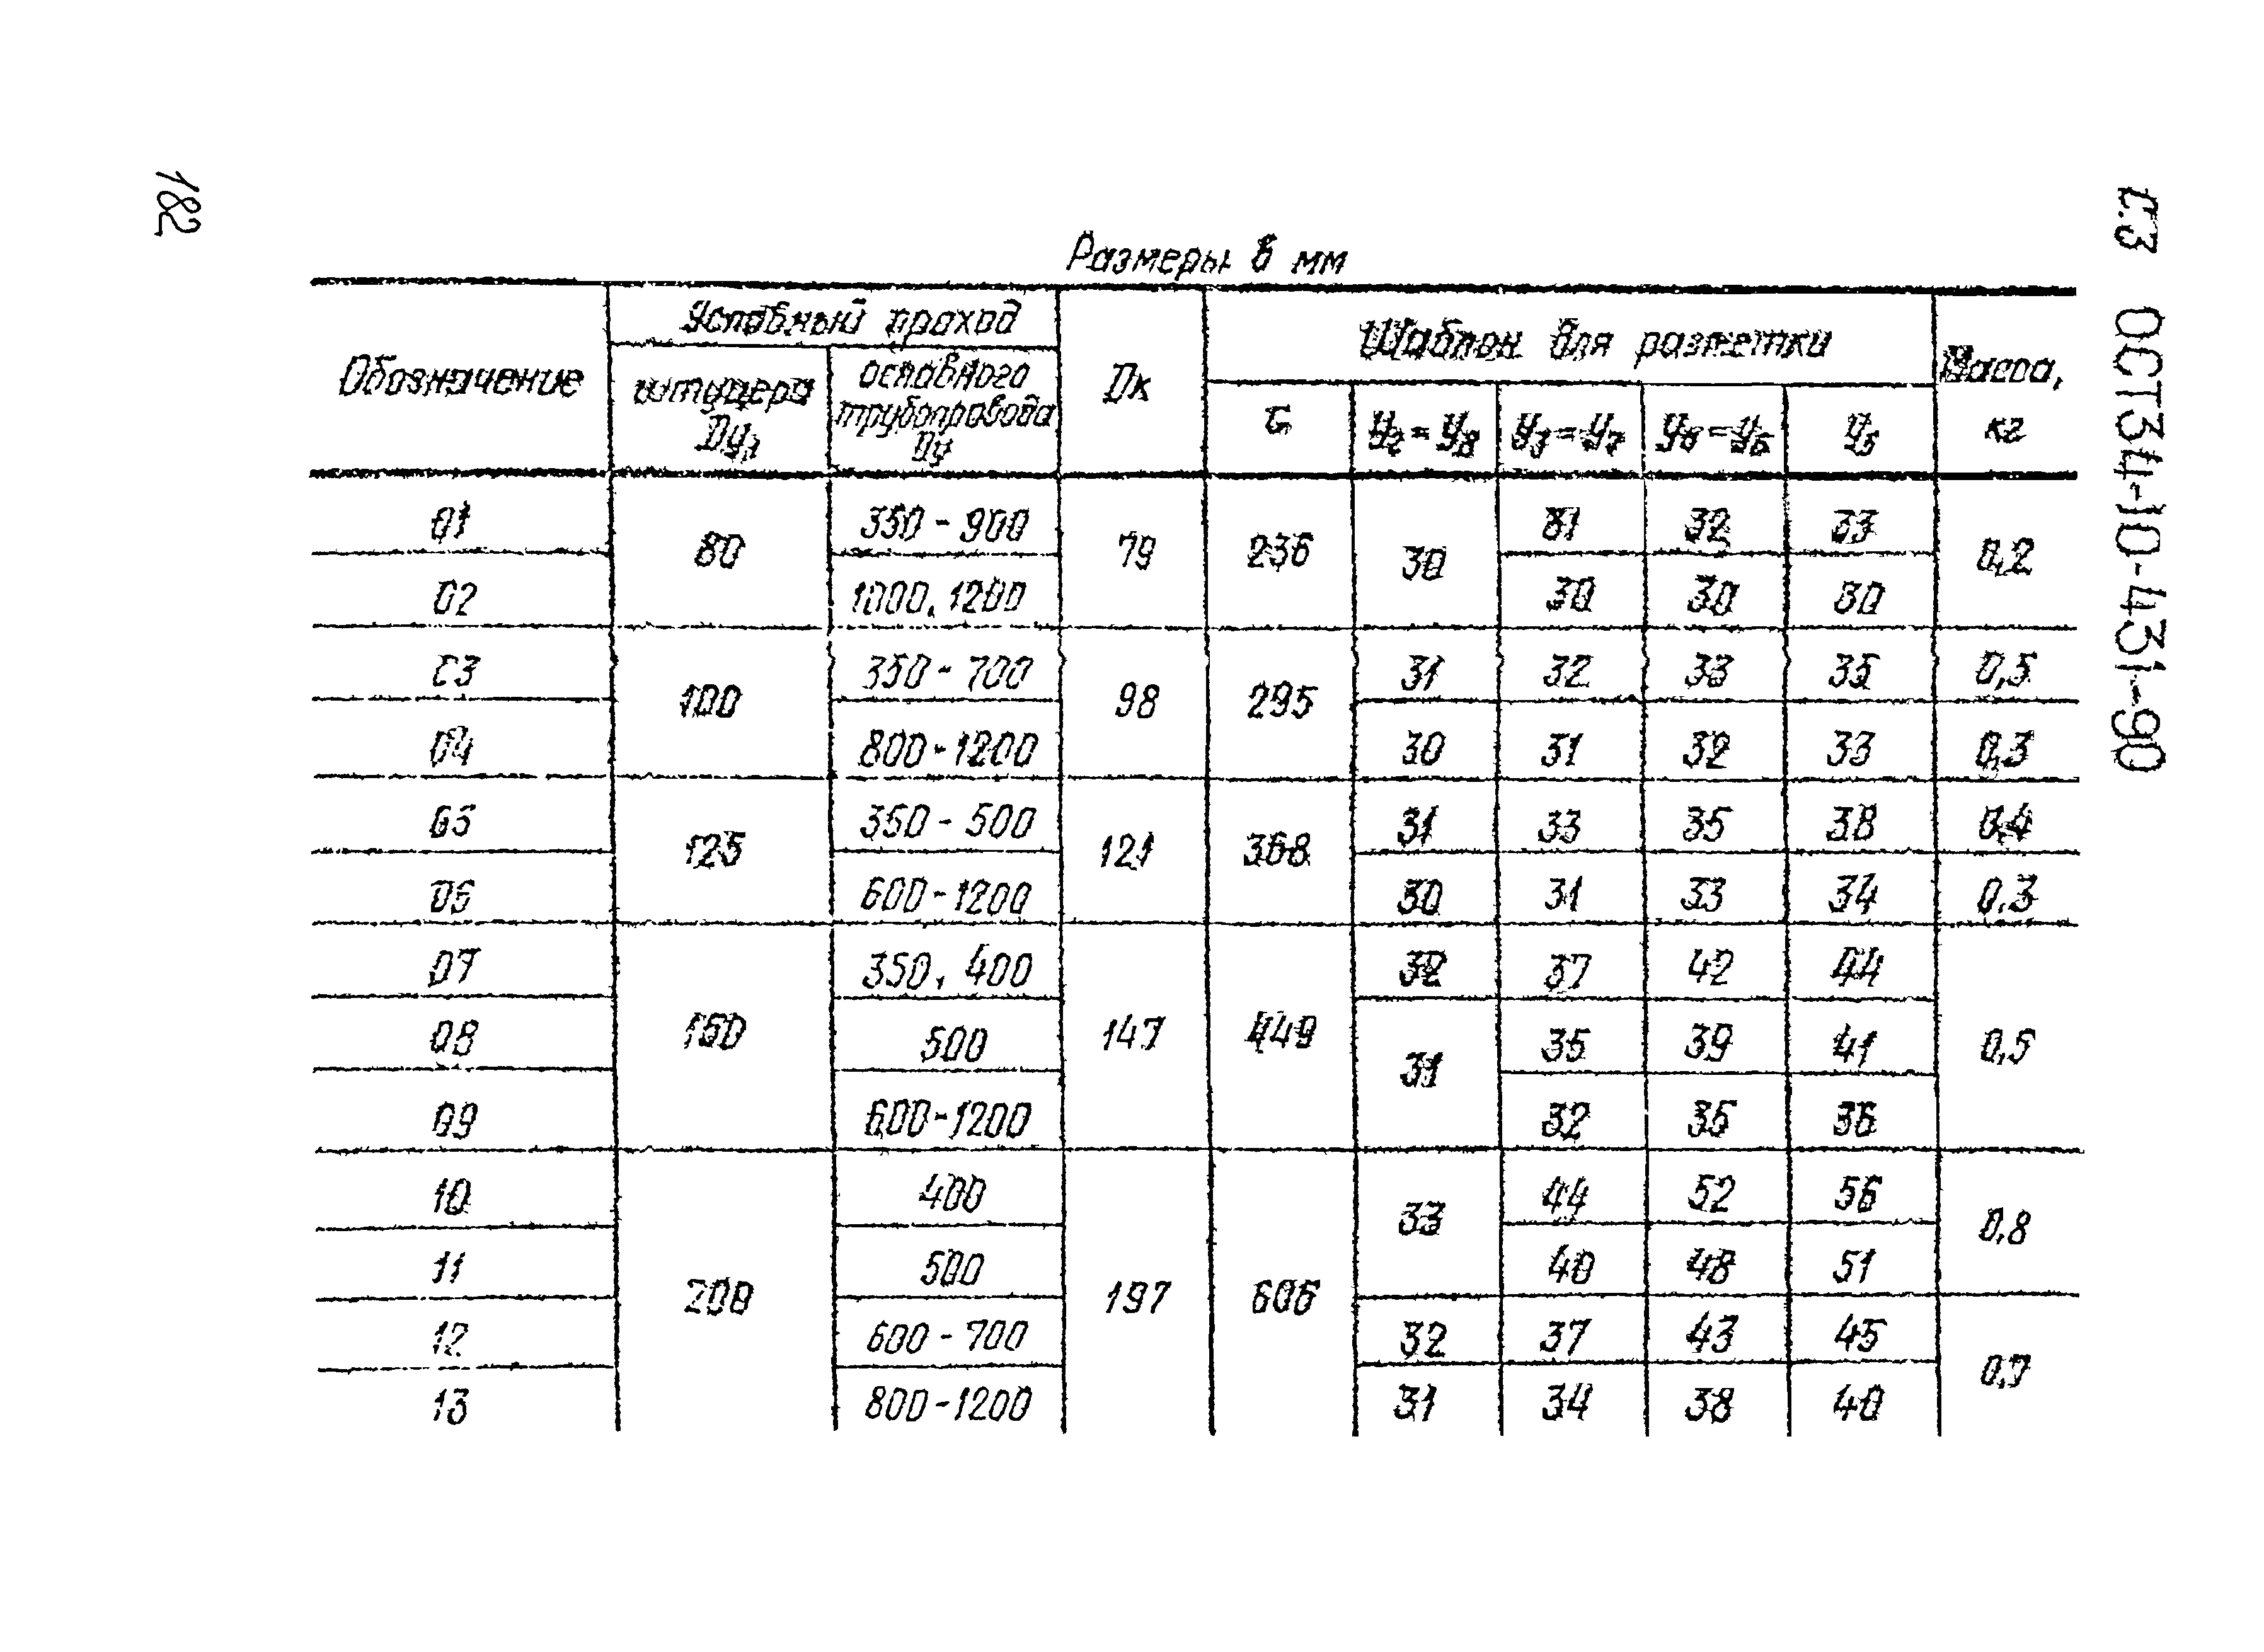 182
С.3 ОСТ 34-10-431-90
Размеры в мм
Обозначение | Условный проход | Dк | Шаблон для разметки | Масса, кг
штуцера Dу1 | основного трубопровода Dу | У2=У8 | У3=У7 | У5
01 | 80 | 350-900 | 79 | 236 | 30 | 31 | 32 | 33 | 0,2
02 | 1000, 1200 | 30 | 30 | 30
03 | 100 | 350-700 | 98 | 295 | 31 | 32 | 33 | 35 | 0,5
04 | 800-1200 | 30 | 31 | 32 | 33 | 0,3
05 | 125 | 350-500 | 121 | 368 | 31 | 33 | 35 | 38 | 0,4
06 | 600-1200 | 30 | 31 | 33 | 34 | 0,3
07 | 150 | 350, 400 | 147 | 449 | 32 | 37 | 42 | 44 | 0,5
08 | 500 | 31 | 35 | 39 | 41
09 | 600-1200 | 32 | 35 | 36
10 | 200 | 400 | 197 | 606 | 33 | 44 | 52 | 56 | 0,8
11 | 500 | 40 | 48 | 51
12 | 600-700 | 32 | 37 | 43 | 45 | 0,7
13 | 800-1200 | 31 | 34 | 38 | 40